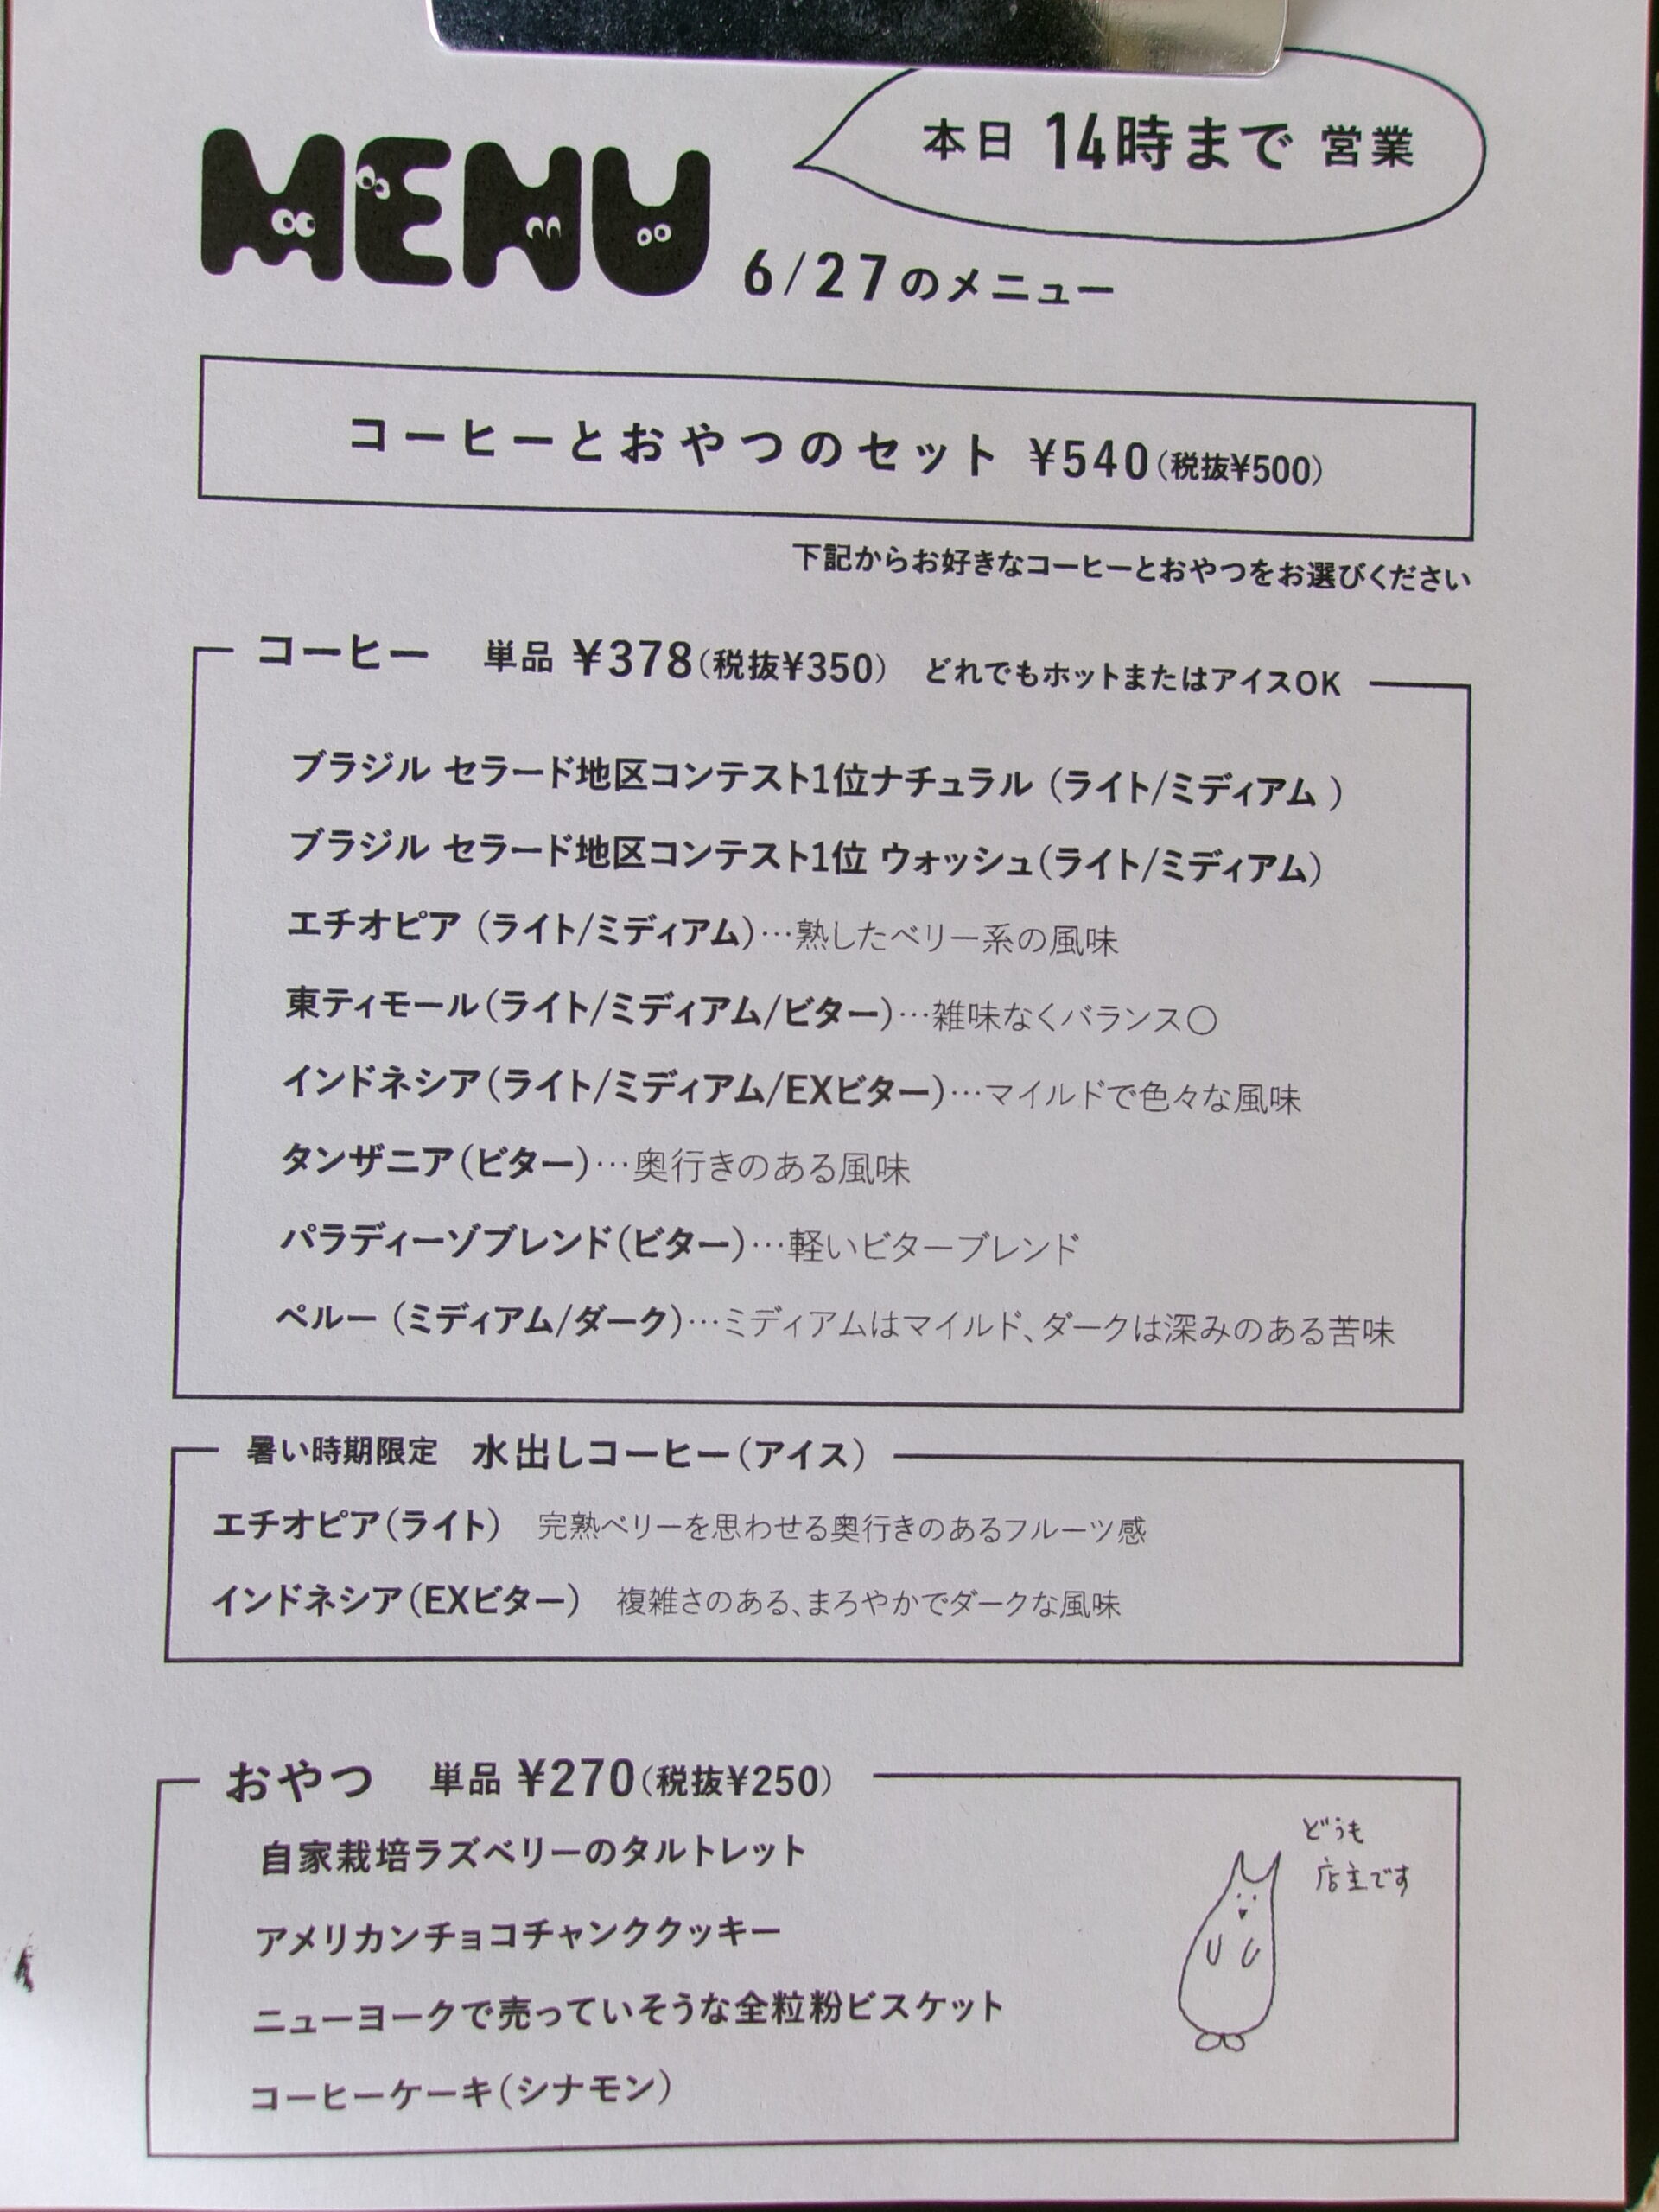 本日 14時まで 営業
MENU
6/27のメニュー
コーヒーとおやつのセット ¥540(税抜¥500)
下記からお好きなコーヒーとおやつをお選びください
コーヒー 単品 ¥378(税抜¥350) どれでもホットまたはアイスOK
ブラジル セラード地区コンテスト1位ナチュラル (ライト/ミディアム )
ブラジル セラード地区コンテスト1位 ウォッシュ(ライト/ミディアム)
エチオピア (ライト/ミディアム)…熟したベリー系の風味
東ティモール(ライト/ミディアム/ビター)…雑味なくバランス〇
インドネシア(ライト/ミディアム/EXビター)…マイルドで色々な風味
タンザニア(ビター)…奥行きのある風味
パラディーゾブレンド(ビター)…軽いビターブレンド
ペルー (ミディアム/ダーク)…ミディアムはマイルド、ダークは深みのある苦味
暑い時期限定 水出しコーヒー(アイス)
エチオピア(ライト) 完熟ベリーを思わせる奥行きのあるフルーツ感
インドネシア(EXビター) 複雑さのある、まろやかでダークな風味
おやつ 単品 ¥270(税抜¥250)
自家栽培ラズベリーのタルトレット
アメリカンチョコチャンククッキー
ニューヨークで売っていそうな全粒粉ビスケット
コーヒーケーキ(シナモン)
どうも
店主です